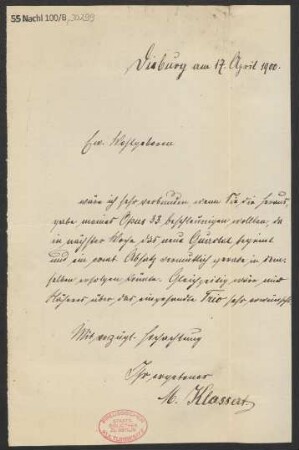 55 Nachl 100/B,
Dieburg am 17. April 1900.
Ew. Wohlgeboren
wäre ich sehr verbunden wenn Sie die Heraus-
gabe meines Opus 33. beschleunigen wollten, da
in nächster Woche das neue Quartal beginnt
und ein event. Absatz vermutlich gerade in dem-
selben erfolgen könnte. Gleichzeitig wäre mir
Näheres über das eingesandte Trio sehr erwünscht.
Mit vorzügl. Hochachtung
Ihr ergebener
M. Klassert.